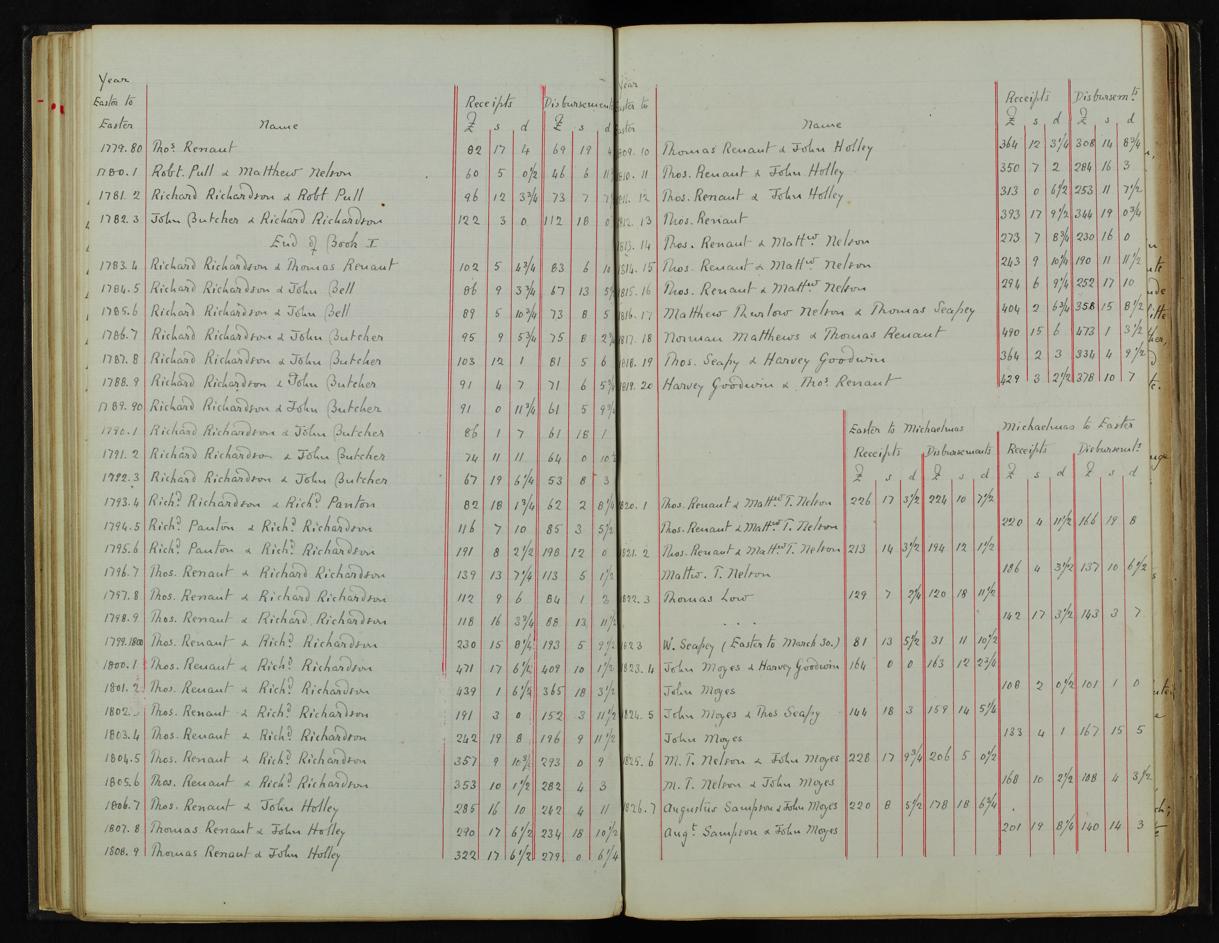 Year
Easter to Receipts Disbursements
Easter Name £ s d £ s d
1779.80 Thos. Renaut 82 17 4 69 19 4
1780.1 Robt. Pull & Matthew Nelson 60 5 0½ 46 6 11
1781.2 Richard Richardson & Robt Pull 96 12 3¾ 73 7 7
1782.3 John Butcher & Richard Richardson 122 3 0 112 18 0
End of Book I
1783.4 Richard Richardson & Thomas Renaut 102 5 4¾ 83 6 10
1784.5 Richard Richardson & John Bell 86 9 3¾ 67 13 5½
1785.6 Richard Richardson & John Bell 89 5 10¾ 73 8 5
1786.7 Richard Richardson & John Butcher 95 9 5¾ 75 8 2¾
1787.8 Richard Richardson & John Butcher 103 12 1 81 5 6
1788.9 Richard Richardson & John Butcher 91 4 7 71 6 5¾
1789.90 Richard Richardson & John Butcher 91 0 11¾ 61 5 9¾
1790.1 Richard Richardson & John Butcher 86 1 7 61 18 1
1791.2 Richard Richardson & John Butcher 74 11 11 64 0 10½
1792.3 Richard Richardson & John Butcher 67 19 6¼ 53 8 3
1793.4 Richd. Richardson & Richd. Panton 82 18 1¾ 62 2 8¼
1794.5 Richd. Panton & Richd. Richardson 116 7 10 85 3 5½
1795.6 Richd. Panton & Richd. Richardson 191 8 2½ 198 12 0
1796.7 Thos. Renaut & Richard Richardson 139 13 7¼ 113 5 1½
1797.8 Thos. Renaut & Richard Richardson 112 9 6 84 1 3
1798.9 Thos. Renaut & Richard Richardson 118 16 3¾ 88 13 11½
1799.1800 Thos. Renaut & Richd. Richardson 230 15 8¼ 193 5 9½
1800.1 Thos. Renaut & Richd. Richardson 471 17 6½ 409 10 1½
1801.2 Thos. Renaut & Richd. Richardson 439 1 6¼ 365 18 3½
1802. Thos. Renaut & Richd. Richardson 191 3 0 152 3 11½
1803.4 Thos. Renaut & Richd. Richardson 242 19 8 196 9 11½
1804.5 Thos. Renaut & Richd. Richardson 357 9 10¾ 293 0 9
1805.6 Thos. Renaut & Richd. Richardson 353 10 1½ 282 4 3
1806.7 Thos. Renaut & John Holley 285 16 10 242 4 11
1807.8 Thomas Renaut & John Holley 290 17 6½ 234 18 10½
1808.9 Thomas Renaut & John Holley 322 17 6½ 279 0 6¼
Year
Easter to Receipts Disbursemts.
Easter Name £ s d £ s d
1809.10 Thomas Renaut & John Holley 364 12 3¼ 308 14 8¾
1810.11 Thos. Renaut & John Holley 350 7 2 284 16 3
1811.12 Thos. Renaut & John Holley 313 0 6½ 253 11 7½
1812.13 Thos. Renaut 393 17 9½ 344 19 0¾
1813.14 Thos. Renaut & Matthw. Nelson 273 7 8¾ 230 16 0
1814.15 Thos. Renaut & Matthw. Nelson 243 9 10¼ 190 11 11½
1815.16 Thos. Renaut & Matthw. Nelson 294 6 9¼ 252 17 10
1816.17 Matthew Thurlow Nelson & Thomas Seapey 404 2 6¾ 358 15 8½
1817.18 Norman Matthews & Thomas Renaut 490 15 6 473 1 3½
1818.19 Thos. Seapy & Harvey Goodwin 364 2 3 334 4 9½
1819.20 Harvey Goodwin & Thos. Renaut 429 3 2½ 378 10 7
Easter to Michaelmas Michaelmas to Easter
Receipts Disbursements Receipts Disbursemts.
£ s d £ s d £ s d £ s d
1820.1 Thos. Renaut & Matthw. T. Nelson 226 17 3½ 224 10 7½
Thos. Renaut & Matthw. T. Nelson 220 4 11½ 166 19 8
1821.2 Thos. Renaut & Matthw. T. Nelson 213 14 3½ 194 12 1½
Matthw. T. Nelson 186 4 3½ 137 10 6½
1822.3 Thomas Low 129 7 2¼ 120 18 11½
. . . 142 17 3½ 143 3 7
1823 W. Seapey (Easter to March 30.) 81 13 5½ 31 11 10½
1823.4 John Moyes & Harvey Goodwin 164 0 0 163 12 2¾
John Moyes 108 2 0½ 101 1 0
1824.5 John Moyes & Thos Seapy 144 18 3 159 14 5¼
John Moyes 133 4 1 167 15 5
1825.6 M. T. Nelson & John Moyes 228 17 9¾ 206 5 0½
M. T. Nelson & John Moyes 168 10 2½ 108 4 3½
1826.7 Augustus Sampson & John Moyes 220 8 5½ 178 18 6¾
Augt. Sampson & John Moyes 201 19 8¼ 140 14 3